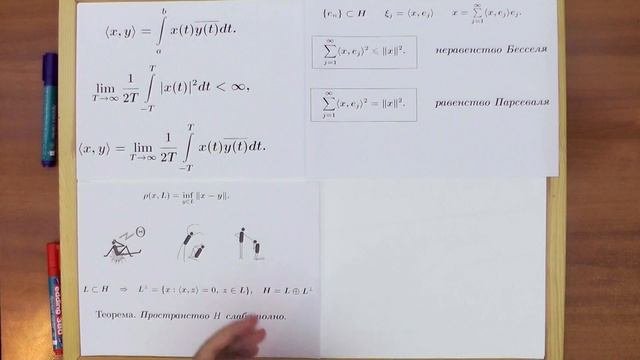 ⟨x, y⟩ = ∫_a^b x(t)\overline{y(t)}dt.
lim_{T→∞} 1/2T ∫_{-T}^T |x(t)|²dt < ∞,
⟨x, y⟩ = lim_{T→∞} 1/2T ∫_{-T}^T x(t)\overline{y(t)}dt.
{e_n} ⊂ H ξ_j = ⟨x, e_j⟩ x = ∑_{j=1}^∞ ⟨x, e_j⟩e_j.
∑_{j=1}^∞ ⟨x, e_j⟩² ⩽ ‖x‖². неравенство Бесселя
∑_{j=1}^∞ ⟨x, e_j⟩² = ‖x‖². равенство Парсеваля
ρ(x, L) = inf_{y∈L} ‖x − y‖.
L ⊂ H ⇒ L^⊥ = {x : ⟨x, z⟩ = 0, z ∈ L}, H = L ⊕ L^⊥
Теорема. Пространство H слабо полно.
edding 380